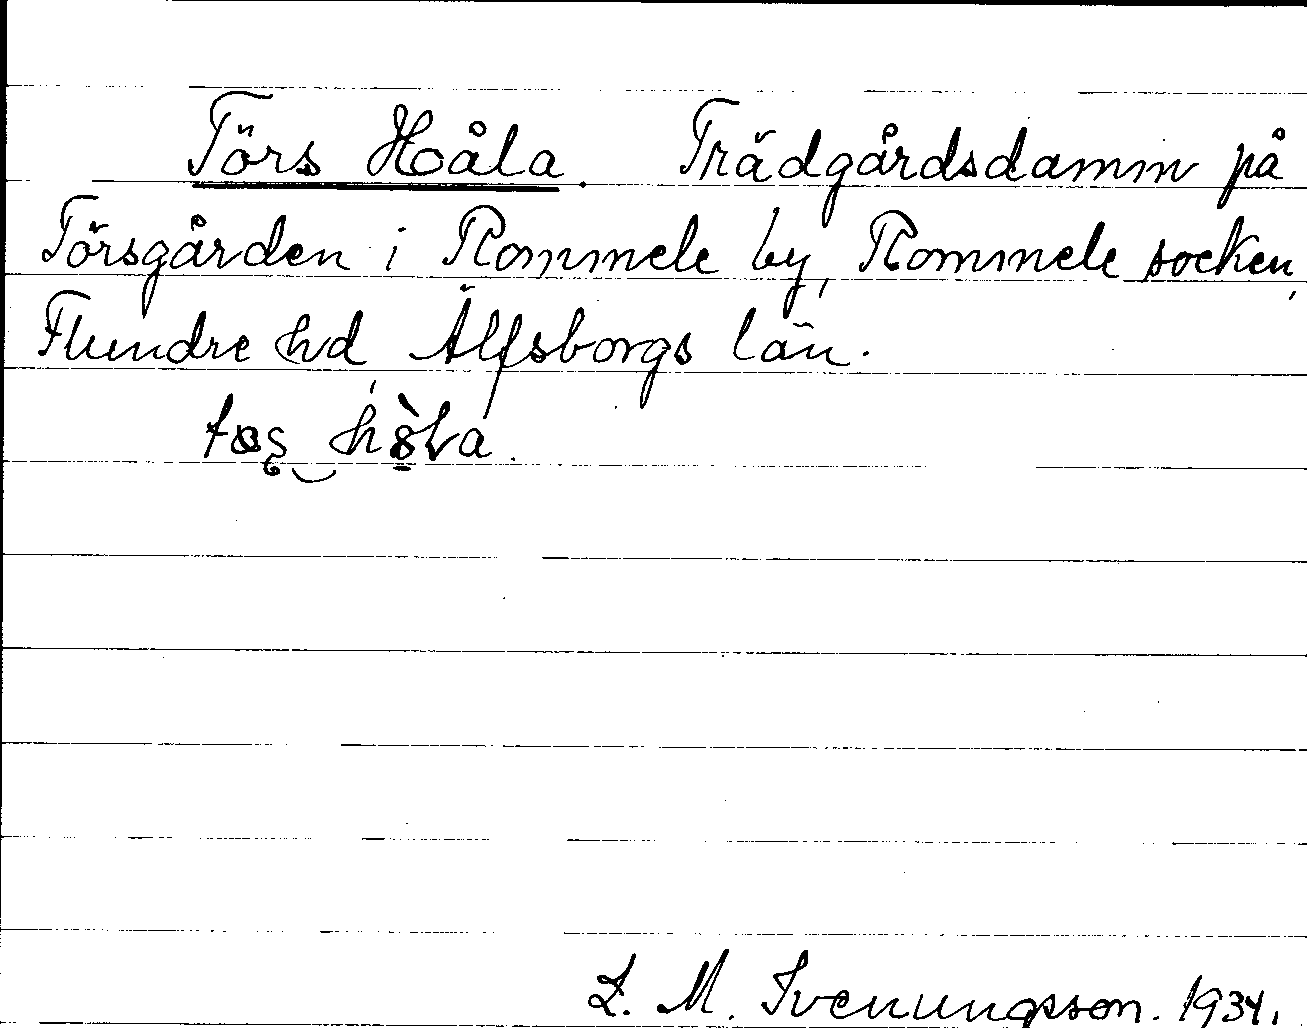 Törs Håla. Trädgårdsdamm på
Törsgården i Rommele by, Rommele socken,
Flundre hd Älfsborgs län.
L. M. Svenungsson. 1934.